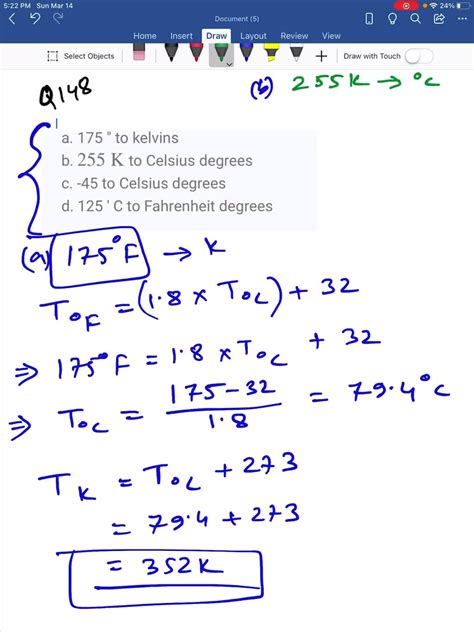 5:22 PM Sun Mar 14
24%
Document (5)
Home Insert Draw Layout Review View
Select Objects
Draw with Touch
Q148
(b) 255K → °C
a. 175 " to kelvins
b. 255 K to Celsius degrees
c. -45 to Celsius degrees
d. 125 ' C to Fahrenheit degrees
(a) 175°F → K
T°F = (1.8 × T°C) + 32
⇒ 175°F = 1.8 × T°C + 32
⇒ T°C = 175-32 / 1.8 = 79.4°C
TK = T°C + 273
= 79.4 + 273
= 352K